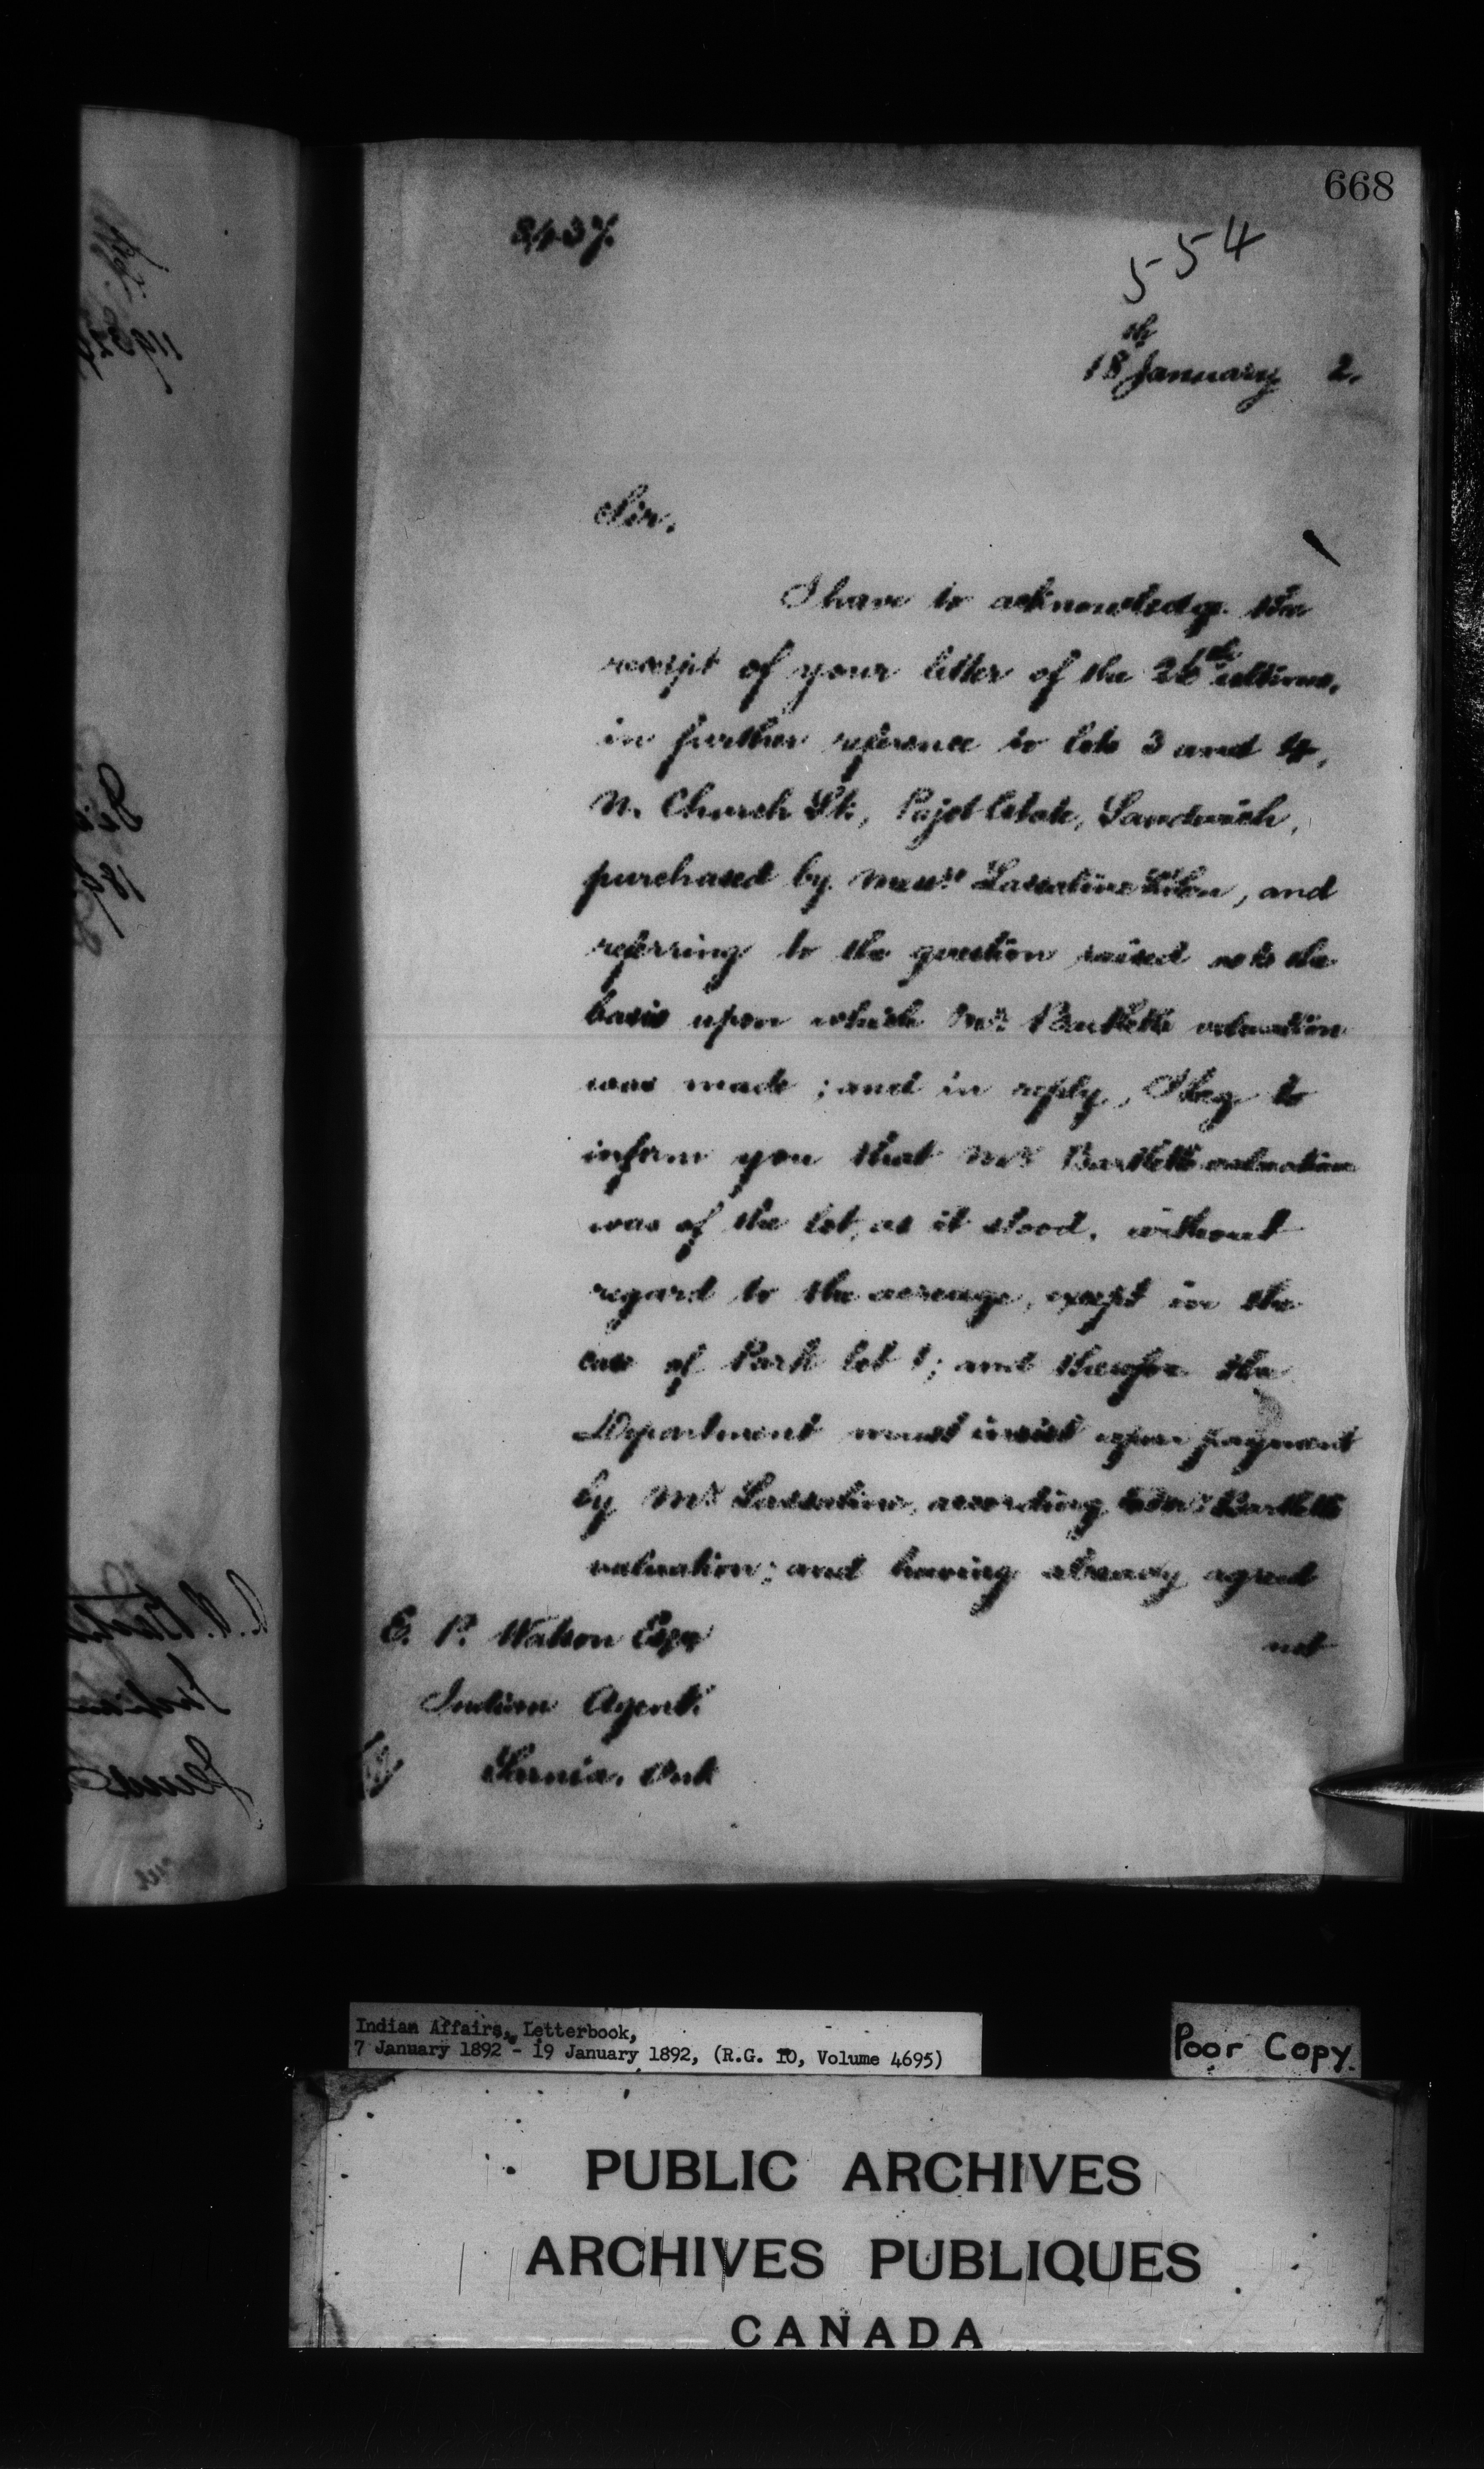 668
554
18th January 2.
Sir,
I have to acknowledge the
receipt of your letter of the 26th ultimo,
in further reference to lots 3 and 4,
N. Church St., Pajot Estate, Sandwich,
purchased by Messrs Lassaline, and
referring to the question raised as to the
basis upon which Mr. Bartlett's valuation
was made; and in reply, I beg to
inform you that Mr. Bartlett's valuation
was of the lot, as it stood, without
regard to the acreage, except in the
case of Park lot 1; and therefore the
Department must insist upon payment
by Mr. Lassaline, according to Mr. Bartlett's
valuation; and having already agreed
not
E. P. Watson Esqr
Indian Agent.
Sarnia. Ont
Indian Affairs, Letterbook,
7 January 1892 - 19 January 1892, (R.G. 10, Volume 4695)
Poor Copy.
PUBLIC ARCHIVES
ARCHIVES PUBLIQUES
CANADA